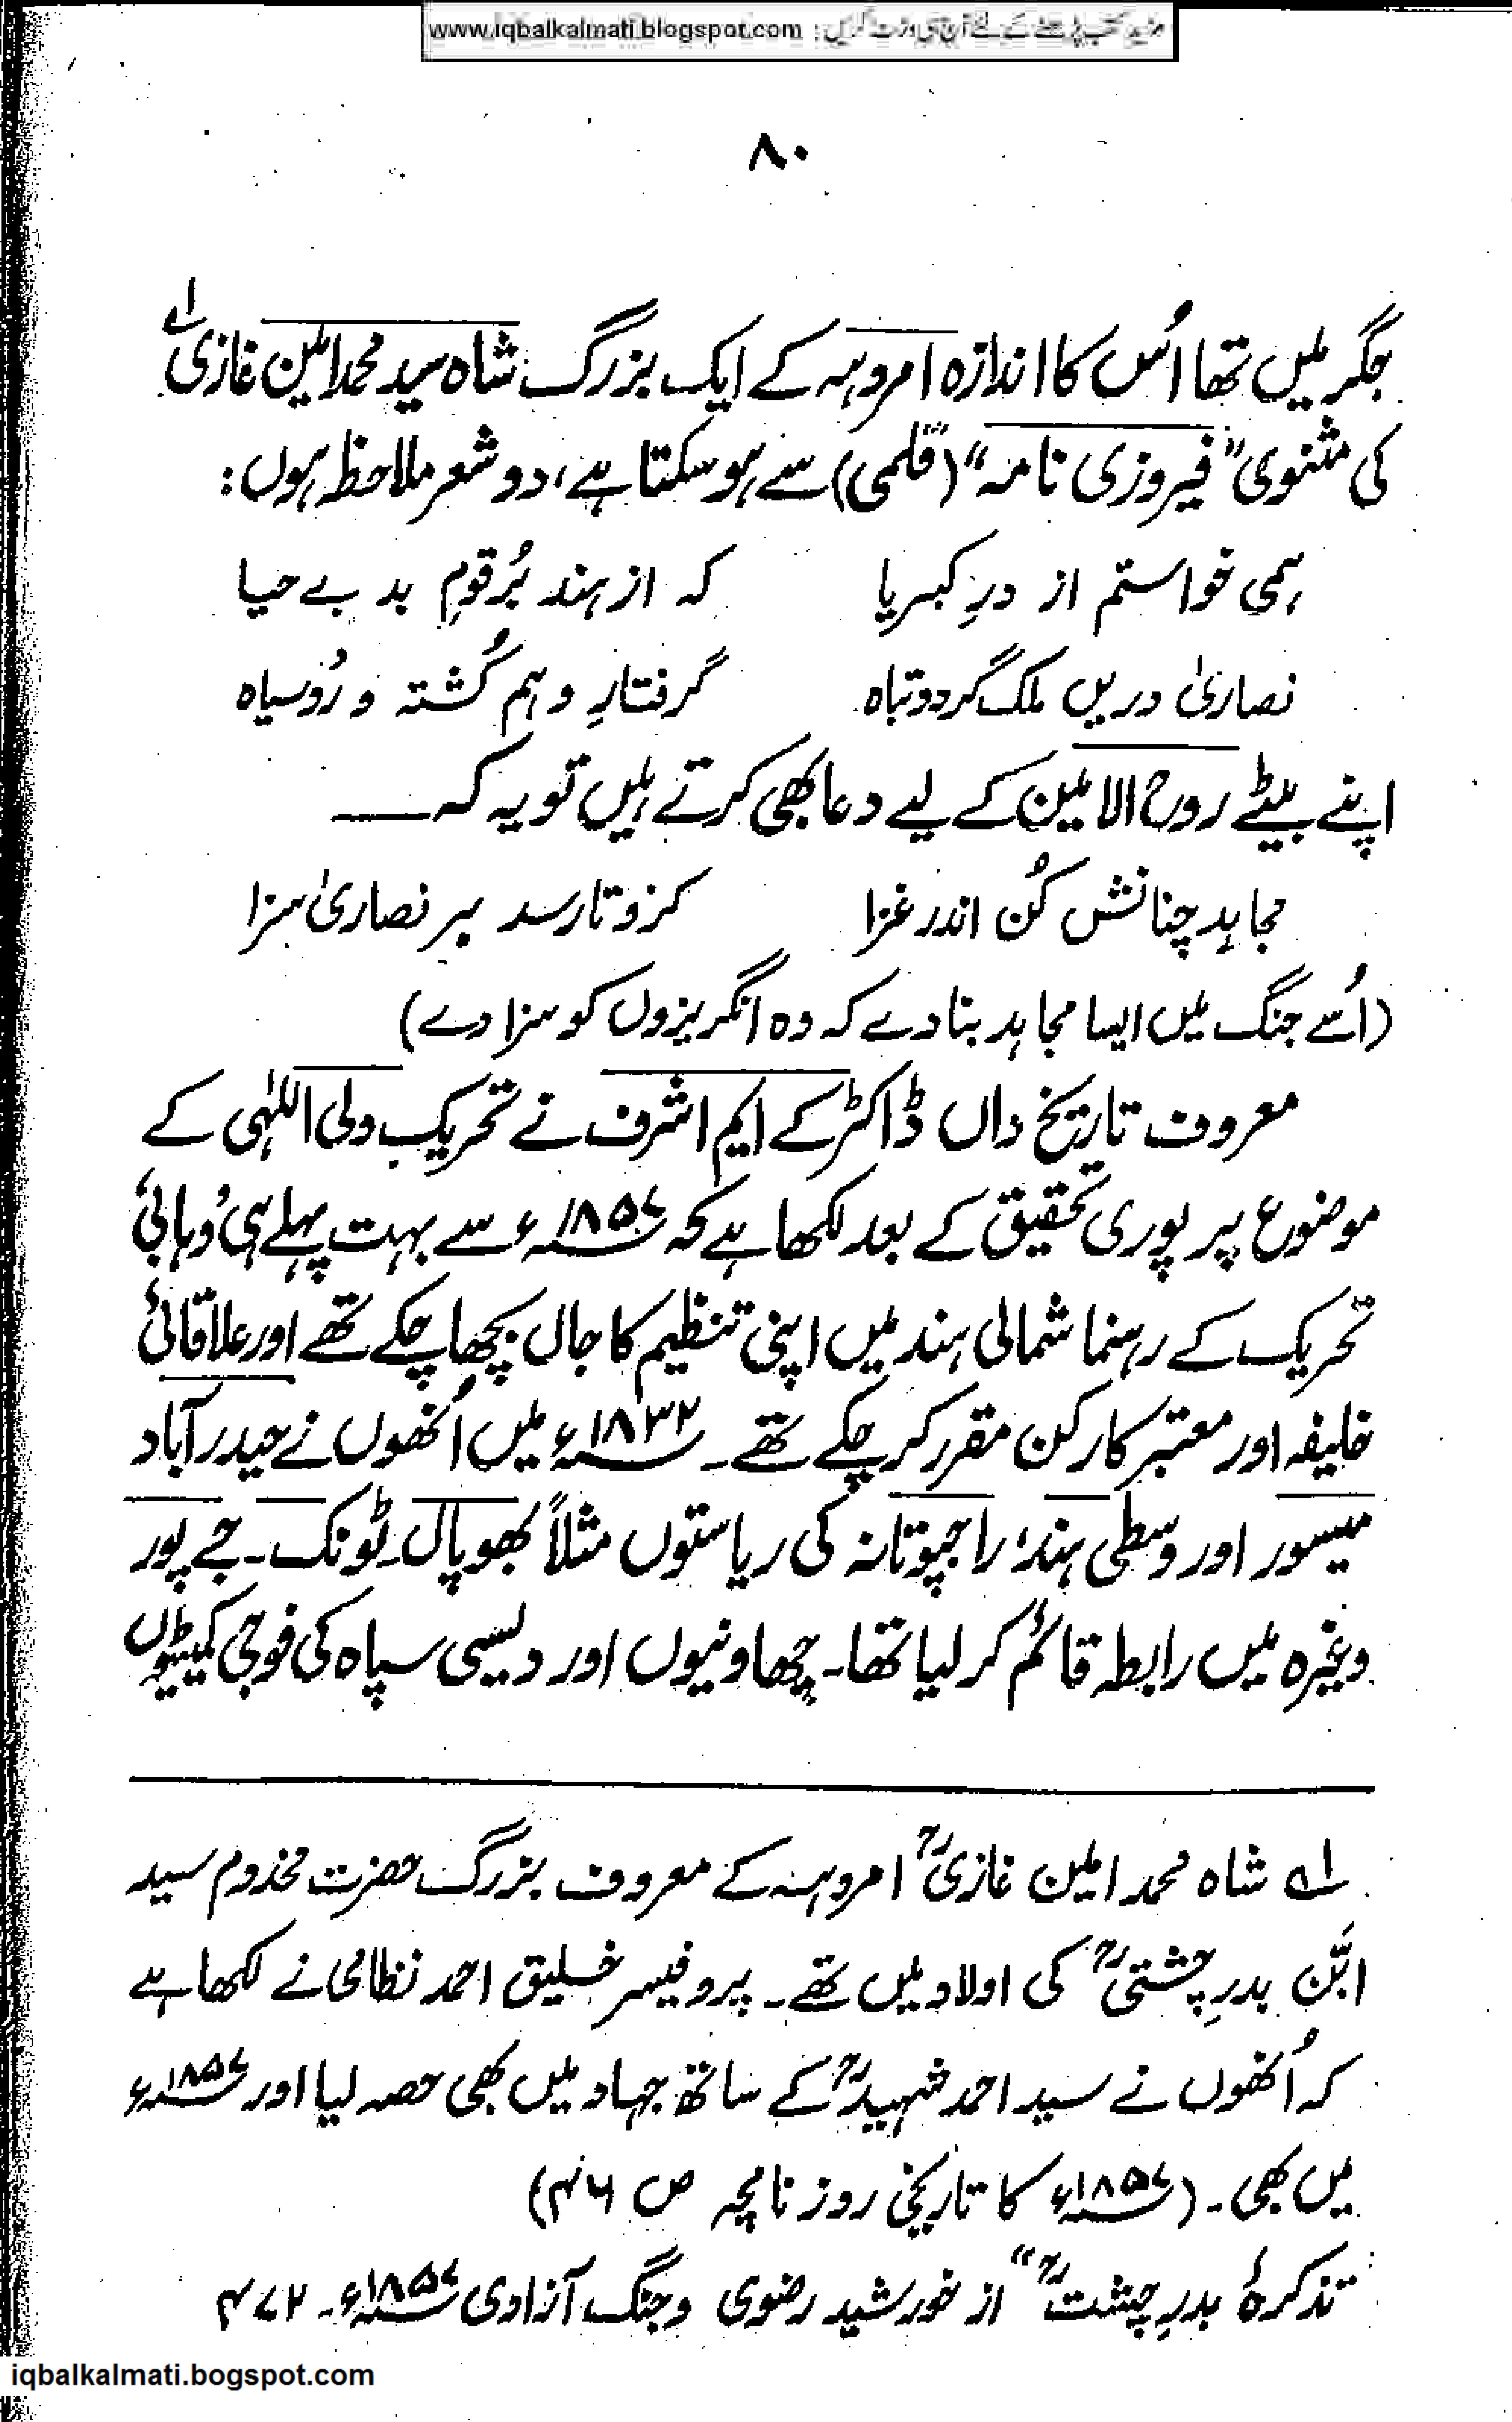 www.iqbalkalmati.blogspot.com : مزید کتب پڑھنے کے لئے آج ہی وزٹ کریں
۸۰
جگر میں تھا اُس کا اندازہ امروہہ کے ایک بزرگ شاہ سید محمد امین غازی ۱ے
کی مثنوی "فیروزی نامہ" (قلمی) سے ہو سکتا ہے، دو شعر ملاحظہ ہوں:
ہمی خواستم از درِ کبریا کہ از ہند بُر قومِ بد بے حیا
نصاریٰ دریں ملک گردو تباہ گرفتارِ وہم کُشتہ و رُوسیاہ
اپنے بیٹے روح الامین کے لیے دعا بھی کرتے ہیں تو یہ کہ ——
مجاہد چنانش کُن اندر غزا کزو تا رسد بر نصاریٰ سزا
(اُسے جنگ میں ایسا مجاہد بنا دے کہ وہ انگریزوں کو سزا دے)
معروف تاریخ داں ڈاکٹر کے ایم اشرف نے تحریک ولی اللٰہی کے
موضوع پر پوری تحقیق کے بعد لکھا ہے کہ ۱۸۵۷ء سے بہت پہلے ہی وہابی
تحریک کے رہنما شمالی ہند میں اپنی تنظیم کا جال بچھا چکے تھے اور علاقائی
خلیفہ اور معتبر کارکن مقرر کر چکے تھے۔ ۱۸۳۲ء میں اُنھوں نے حیدر آباد
میسور اور وسطی ہند، راجپوتانہ کی ریاستوں مثلاً بھوپال۔ ٹونک۔ جے پور
وغیرہ میں رابطہ قائم کر لیا تھا۔ چھاونیوں اور دیسی سپاہ کی فوجی کمیٹیوں
۱ے شاہ محمد امین غازیؒ امروہہ کے معروف بزرگ حضرت مخدوم سید
ابّن بدرِ چشتیؒ کی اولاد میں تھے۔ پروفیسر خلیق احمد نظامی نے لکھا ہے
کہ اُنھوں نے سید احمد شہیدؒ کے ساتھ جہاد میں بھی حصہ لیا اور ۱۸۵۷ء
میں بھی۔ (۱۸۵۷ء کا تاریخی روزنامچہ ص ۴۶)
تذکرۂ بدرِ چشتؒ" از خورشید رضوی وجنگ آزادی ۱۸۵۷ء۔ ۴۷۲
iqbalkalmati.bogspot.com